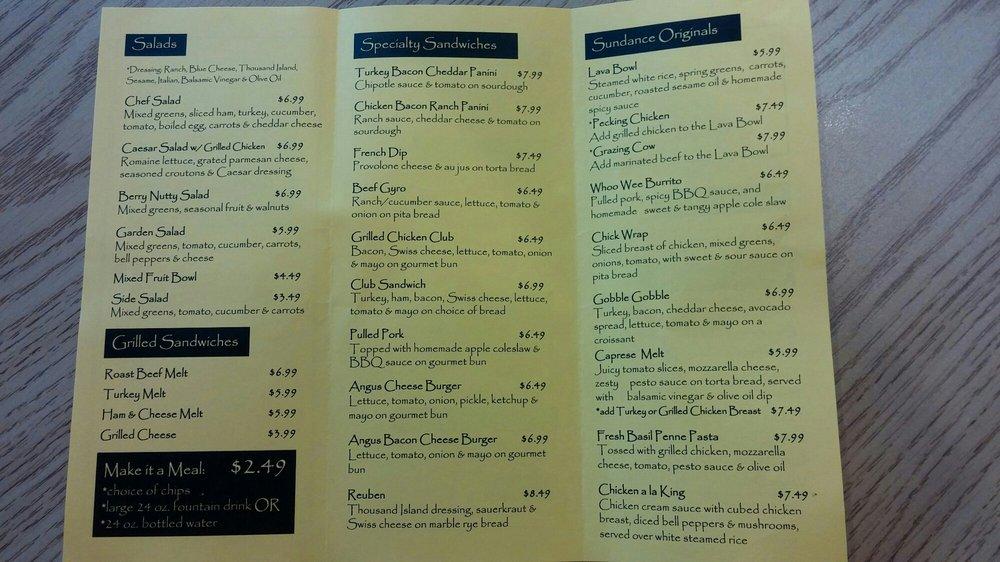 Salads
*Dressing: Ranch, Blue Cheese, Thousand Island,
Sesame, Italian, Balsamic Vinegar & Olive Oil
Chef Salad $6.99
Mixed greens, sliced ham, turkey, cucumber,
tomato, boiled egg, carrots & cheddar cheese
Caesar Salad w/ Grilled Chicken $6.99
Romaine lettuce, grated parmesan cheese,
seasoned croutons & Caesar dressing
Berry Nutty Salad $6.99
Mixed greens, seasonal fruit & walnuts
Garden Salad $5.99
Mixed greens, tomato, cucumber, carrots,
bell peppers & cheese
Mixed Fruit Bowl $4.49
Side Salad $3.49
Mixed greens, tomato, cucumber & carrots
Grilled Sandwiches
Roast Beef Melt $6.99
Turkey Melt $5.99
Ham & Cheese Melt $5.99
Grilled Cheese $3.99
Make it a Meal: $2.49
*choice of chips
*large 24 oz. fountain drink OR
*24 oz. bottled water
Specialty Sandwiches
Turkey Bacon Cheddar Panini $7.99
Chipotle sauce & tomato on sourdough
Chicken Bacon Ranch Panini $7.99
Ranch sauce, cheddar cheese & tomato on
sourdough
French Dip $7.49
Provolone cheese & au jus on torta bread
Beef Gyro $6.49
Ranch/cucumber sauce, lettuce, tomato &
onion on pita bread
Grilled Chicken Club $6.49
Bacon, Swiss cheese, lettuce, tomato, onion
& mayo on gourmet bun
Club Sandwich $6.99
Turkey, ham, bacon, Swiss cheese, lettuce,
tomato & mayo on choice of bread
Pulled Pork $6.49
Topped with homemade apple coleslaw &
BBQ sauce on gourmet bun
Angus Cheese Burger $6.49
Lettuce, tomato, onion, pickle, ketchup &
mayo on gourmet bun
Angus Bacon Cheese Burger $6.99
Lettuce, tomato, onion & mayo on gourmet
bun
Reuben $8.49
Thousand Island dressing, sauerkraut &
Swiss cheese on marble rye bread
Sundance Originals
Lava Bowl $5.99
Steamed white rice, spring greens, carrots,
cucumber, roasted sesame oil & homemade
spicy sauce
*Pecking Chicken $7.49
Add grilled chicken to the Lava Bowl
*Grazing Cow $7.99
Add marinated beef to the Lava Bowl
Whoo Wee Burrito $6.49
Pulled pork, spicy BBQ sauce, and
homemade sweet & tangy apple cole slaw
Chick Wrap $6.49
Sliced breast of chicken, mixed greens,
onions, tomato, with sweet & sour sauce on
pita bread
Gobble Gobble $6.99
Turkey, bacon, cheddar cheese, avocado
spread, lettuce, tomato & mayo on a
croissant
Caprese Melt $5.99
Juicy tomato slices, mozzarella cheese,
zesty pesto sauce on torta bread, served
with balsamic vinegar & olive oil dip
*add Turkey or Grilled Chicken Breast $7.49
Fresh Basil Penne Pasta $7.99
Tossed with grilled chicken, mozzarella
cheese, tomato, pesto sauce & olive oil
Chicken a la King $7.49
Chicken cream sauce with cubed chicken
breast, diced bell peppers & mushrooms,
served over white steamed rice